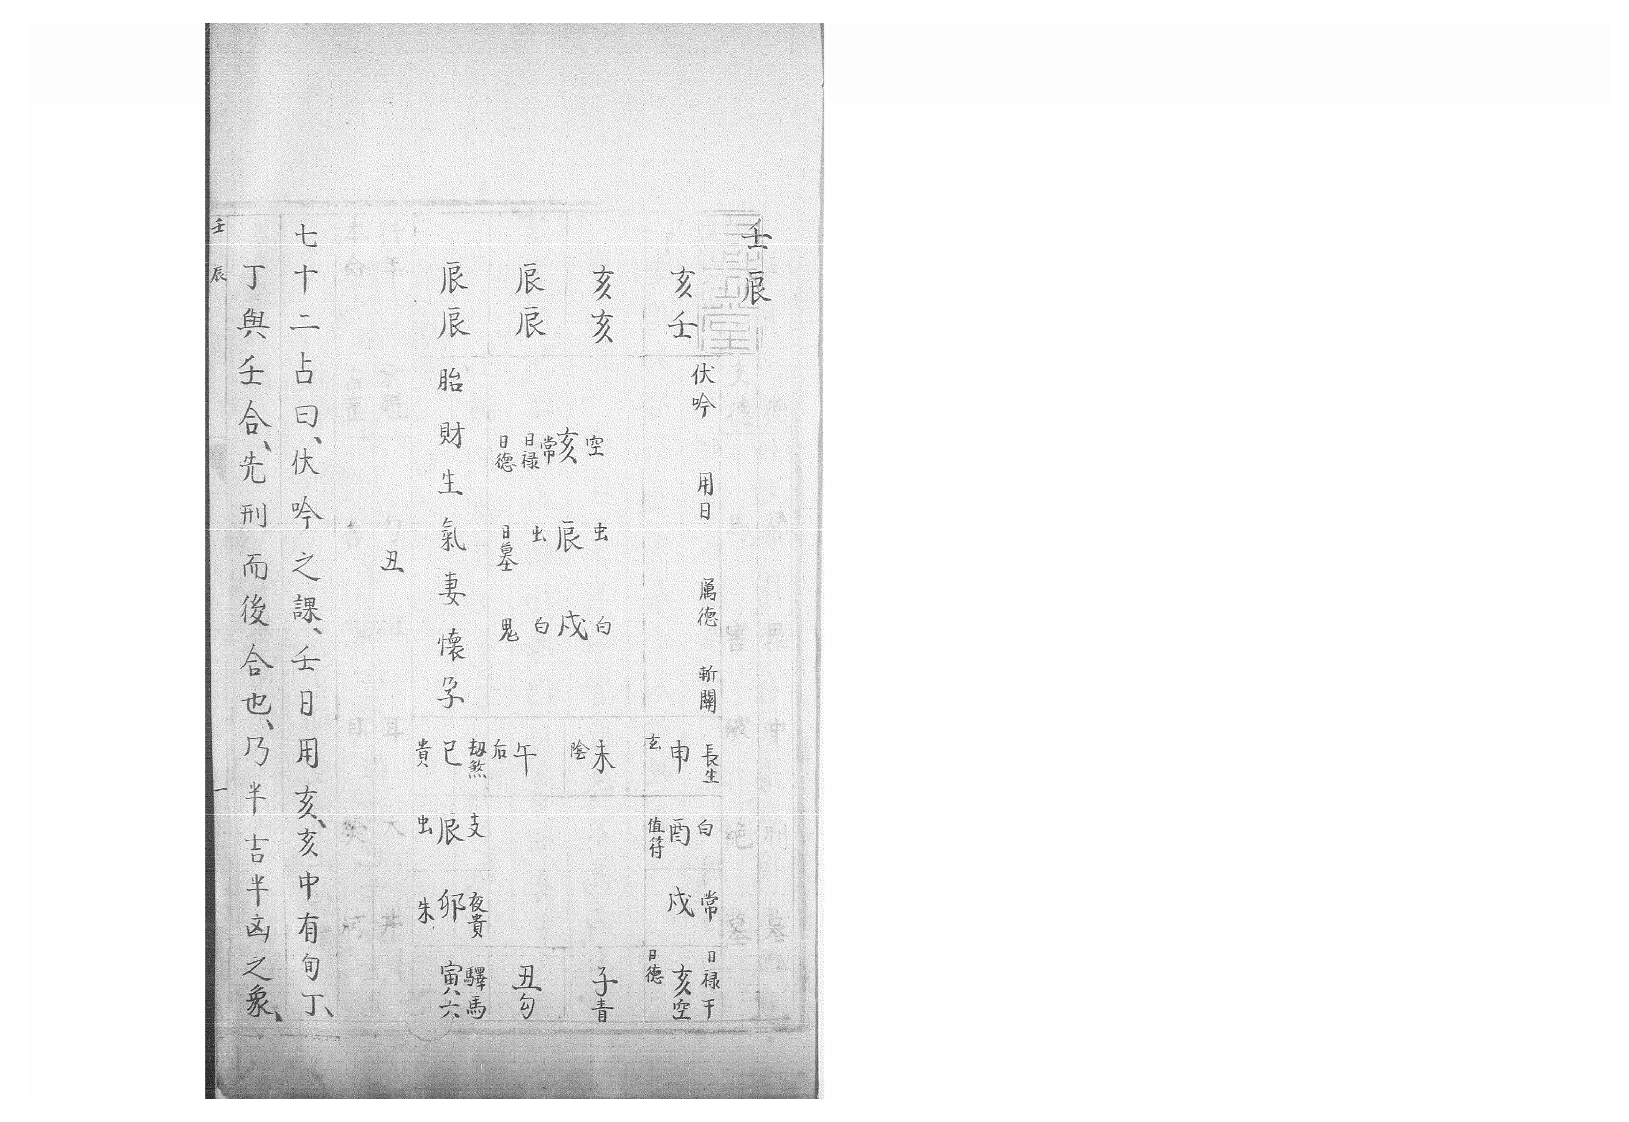 壬辰
伏吟 用日 屬德 斬關
亥壬
亥亥
辰辰
辰辰
空亥常日祿日德
虫辰虫日墓
白戌白鬼
胎財生氣妻懷孕
丑
長生申玄
未陰
午后
劫煞巳貴
白酉值符
支辰虫
常戌
夜貴卯朱
日祿干亥空日德
子青
丑勾
驛馬寅六
七十二占曰、伏吟之課、壬日用亥、亥中有旬丁、
丁與壬合、先刑而後合也、乃半吉半凶之象、
壬辰 一